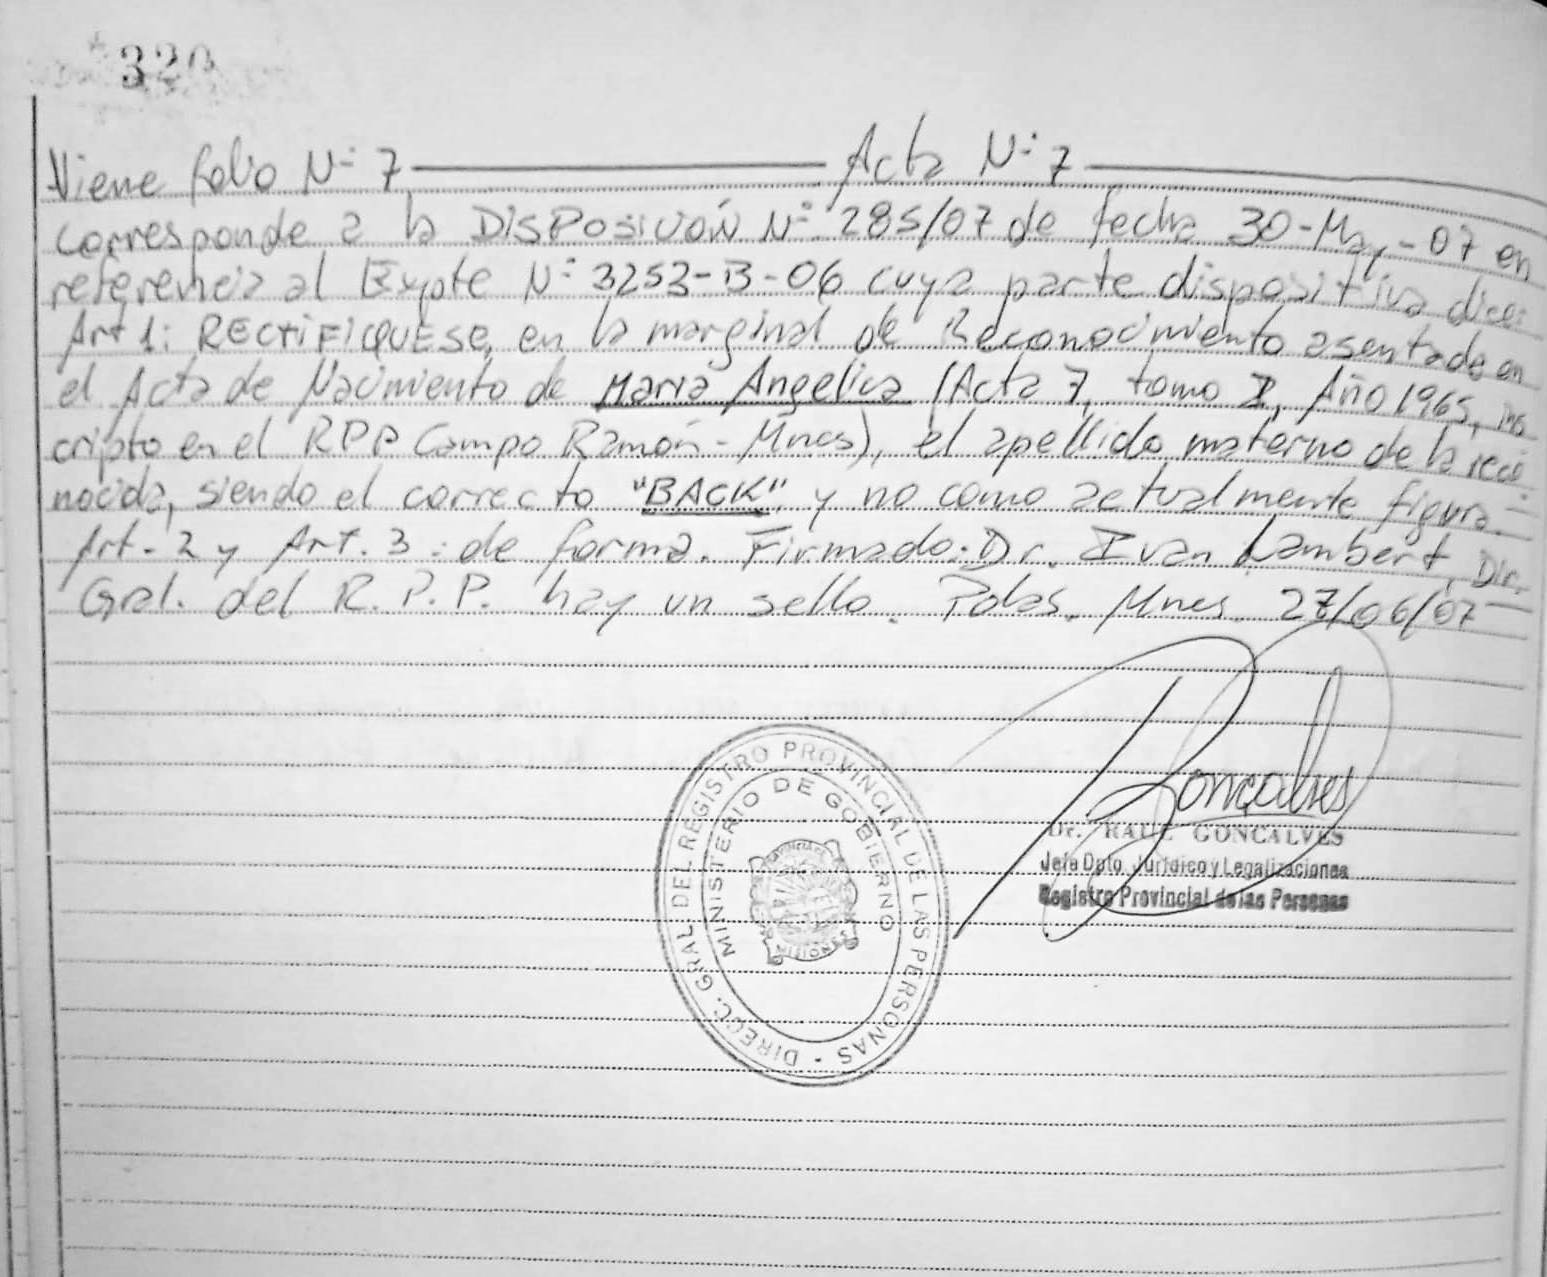 320
Viene folio Nº 7 Acta Nº 7
corresponde a la DISPOSICIÓN Nº 285/07 de fecha 30-May-07 en
referencia al Expte Nº 3253-B-06 cuya parte dispositiva dice:
Art 1: RECTIFIQUESE, en la marginal de Reconocimiento asentada en
el Acta de Nacimiento de Maria Angelica (Acta 7, tomo I, Año 1965, ins
cripto en el RPP Campo Ramón - Mnes), el apellido materno de la reco
nocida, siendo el correcto "BACK" y no como actualmente figura.
Art. 2 y Art. 3: de forma. Firmado: Dr. Ivan Lambert, Dir.
Gral. del R.P.P. hay un sello. Pdas. Mnes. 27/06/07
Goncalves
Dr. RAUL GONCALVES
Jefe Dpto. Jurídico y Legalizaciones
Registro Provincial de las Personas
DIRECC. GRAL DEL REGISTRO PROVINCIAL DE LAS PERSONAS -
MINISTERIO DE GOBIERNO